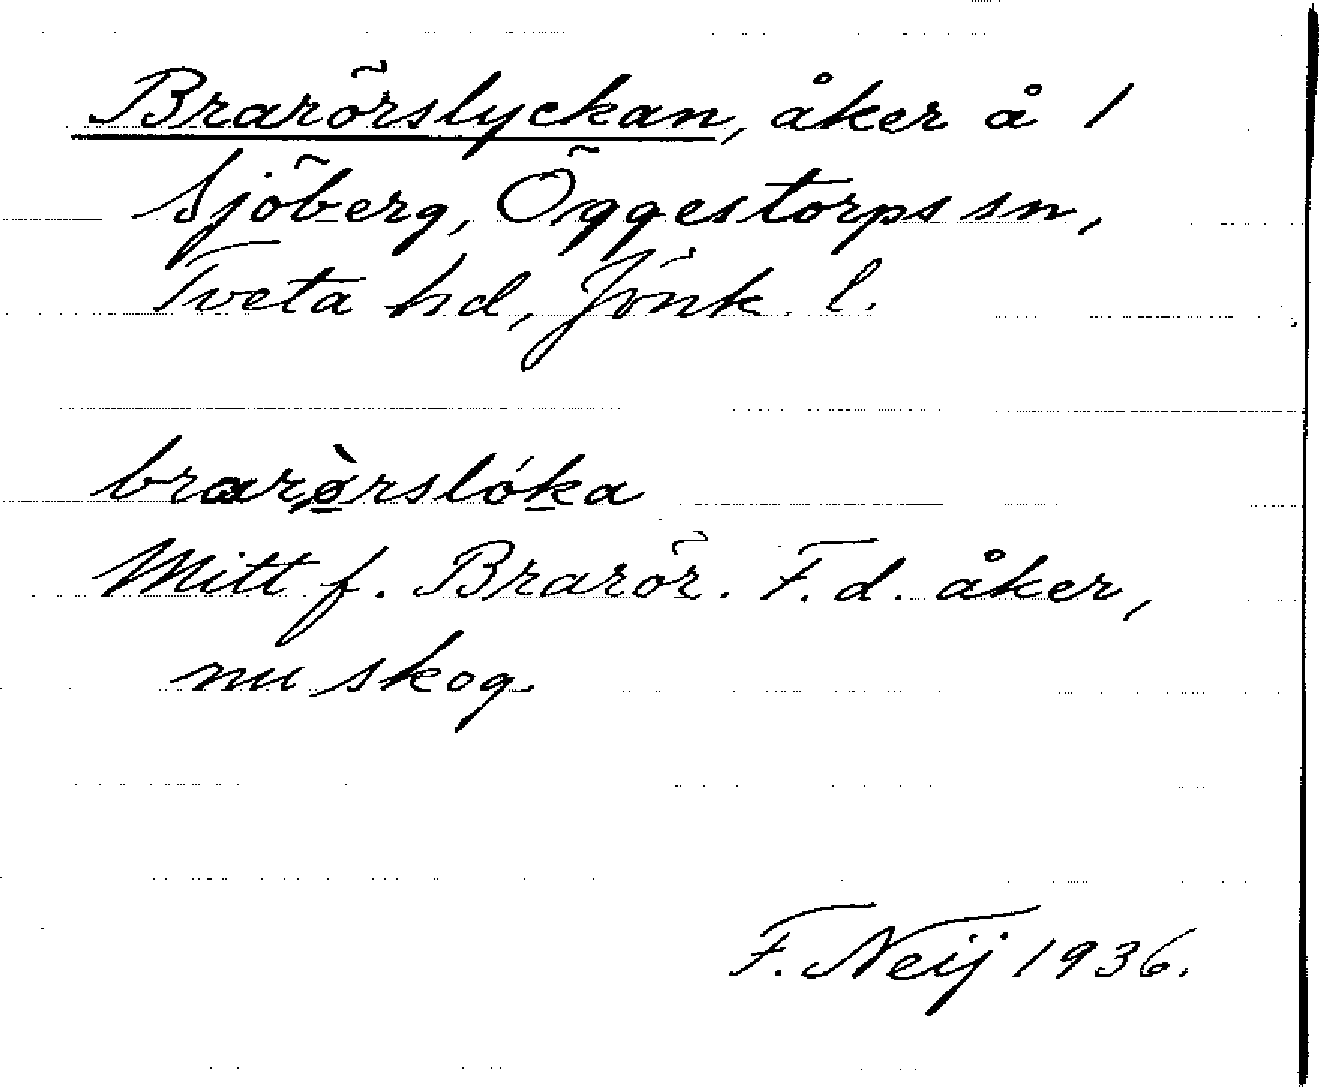 Brarörslyckan, åker å 1
Sjöberg, Öggestorps sn,
Tveta hd, Jönk. l.
braròrslóka
Mitt f. Brarör. F. d. åker,
nu skog.
F. Neij 1936.